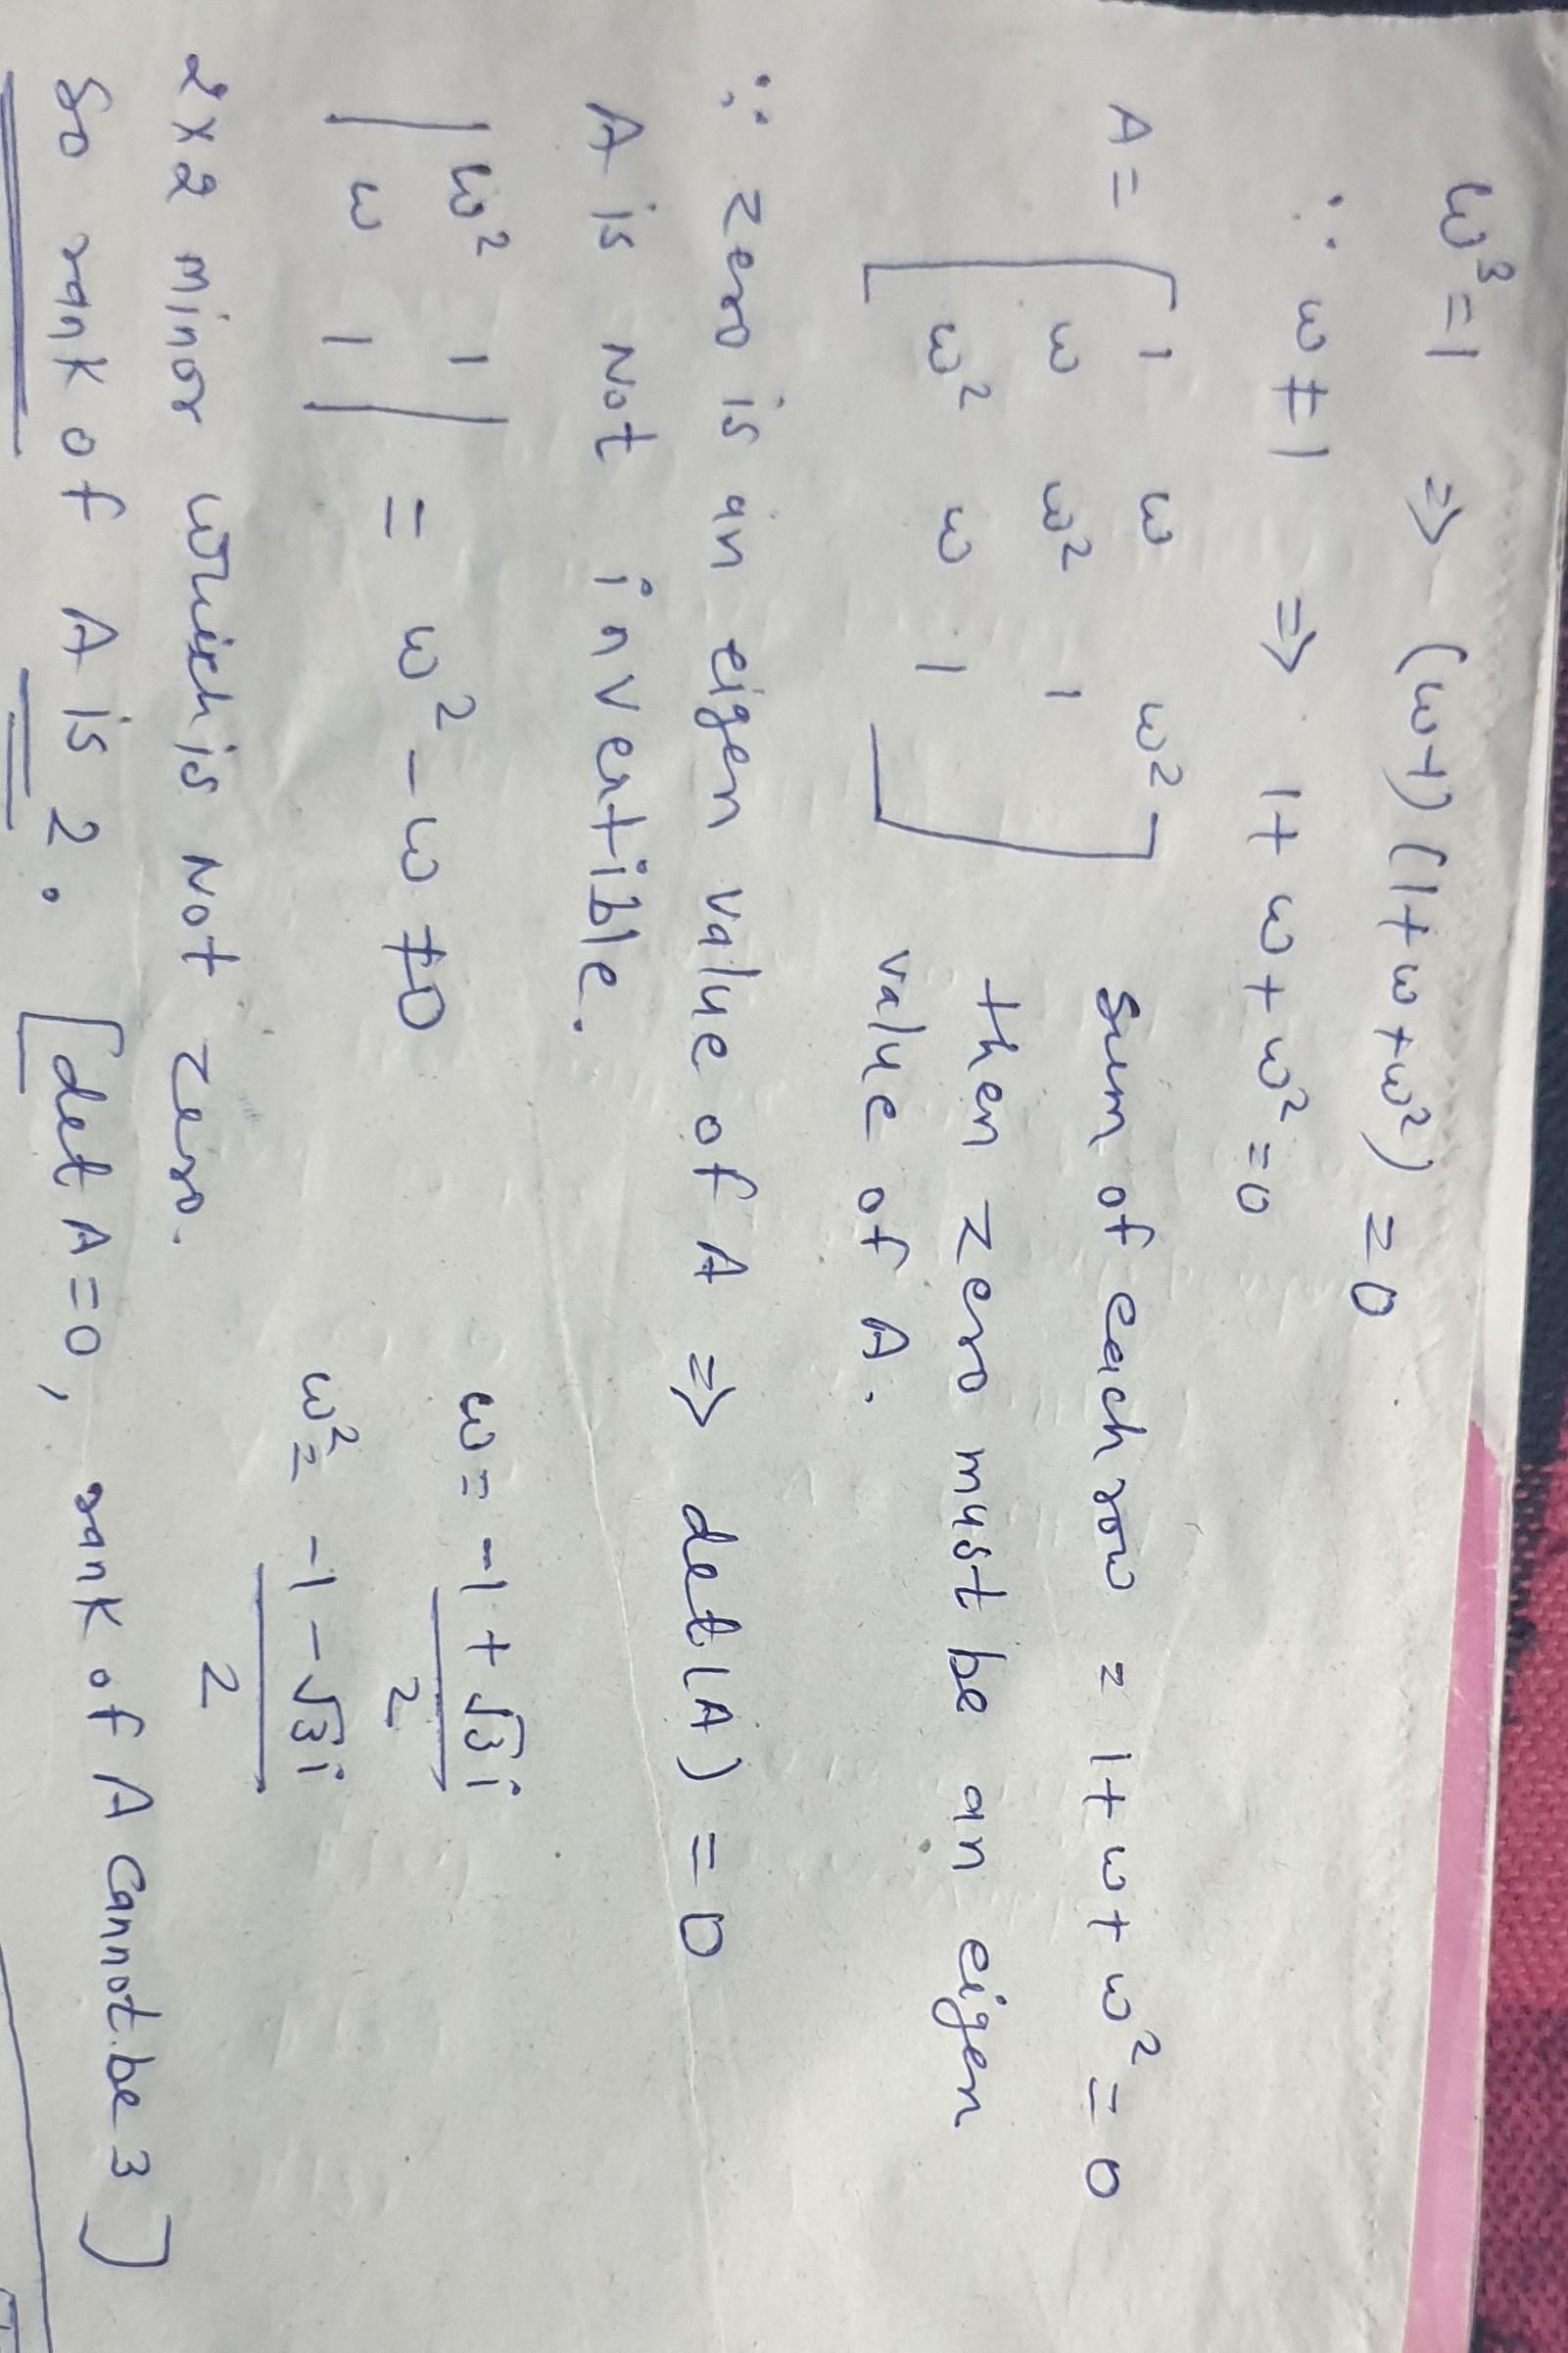 ω³=1 ⇒ (ω-1)(1+ω+ω²) = 0
∵ ω ≠ 1 ⇒ 1+ω+ω² = 0
A = [ 1 ω ω²
ω ω² 1
ω² ω 1 ]
Sum of each row = 1+ω+ω² = 0
then zero must be an eigen
value of A.
∵ zero is an eigen value of A ⇒ det(A) = 0
A is Not invertible.
| ω² 1
ω 1 | = ω² - ω ≠ 0
ω = -1 + √3i / 2
ω² = -1 - √3i / 2
2×2 minor which is Not zero.
So rank of A is 2. [det A = 0, rank of A cannot be 3]